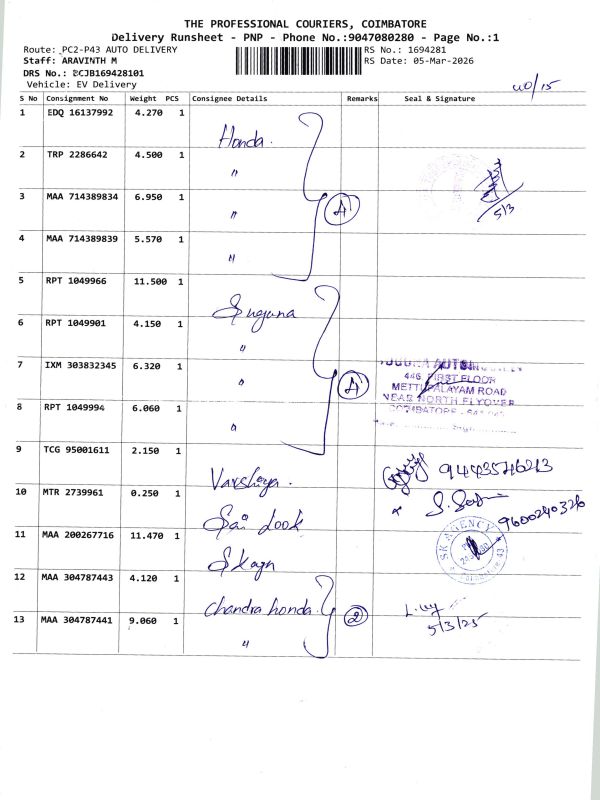 THE PROFESSIONAL COURIERS, COIMBATORE
Delivery Runsheet - PNP - Phone No.:9047080280 - Page No.:1
Route: PC2-P43 AUTO DELIVERY RS No.: 1694281
Staff: ARAVINTH M RS Date: 05-Mar-2026
DRS No.: BCJB169428101
Vehicle: EV Delivery
S No Consignment No Weight PCS Consignee Details Remarks Seal & Signature
1 EDQ 16137992 4.270 1 Honda.
2 TRP 2286642 4.500 1 "
3 MAA 714389834 6.950 1 " 5/3
4 MAA 714389839 5.570 1 "
5 RPT 1049966 11.500 1 Suguna
6 RPT 1049901 4.150 1 "
7 IXM 303832345 6.320 1 "
446 FIRST FLOOR
METTUPALAYAM ROAD
8 RPT 1049994 6.060 1 "
NEAR NORTH FLYOVER
COIMBATORE
9 TCG 95001611 2.150 1 Varshiya.
10 MTR 2739961 0.250 1 Sai Look 9600240326
11 MAA 200267716 11.470 1 SK AGENCY
12 MAA 304787443 4.120 1 Chandra honda. 2
13 MAA 304787441 9.060 1 " 5/3/25